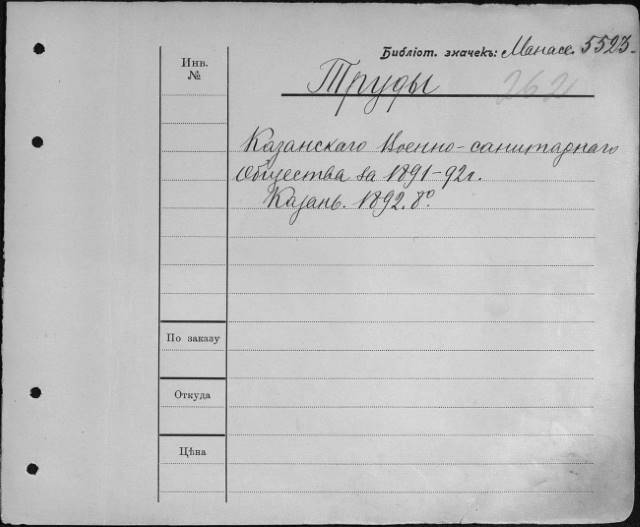 Библіот. значекъ: Манасе. 5523.
Инв.
№
Труды
262
Казанскаго Военно-санитарнаго
Общества за 1891-92 г.
Казань. 1892. 8°.
По заказу
Откуда
Цѣна